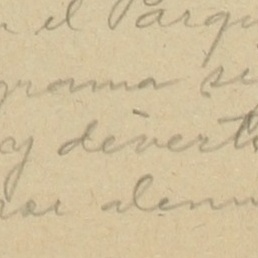 n el Parqu
grama si
y divert
ras alenu